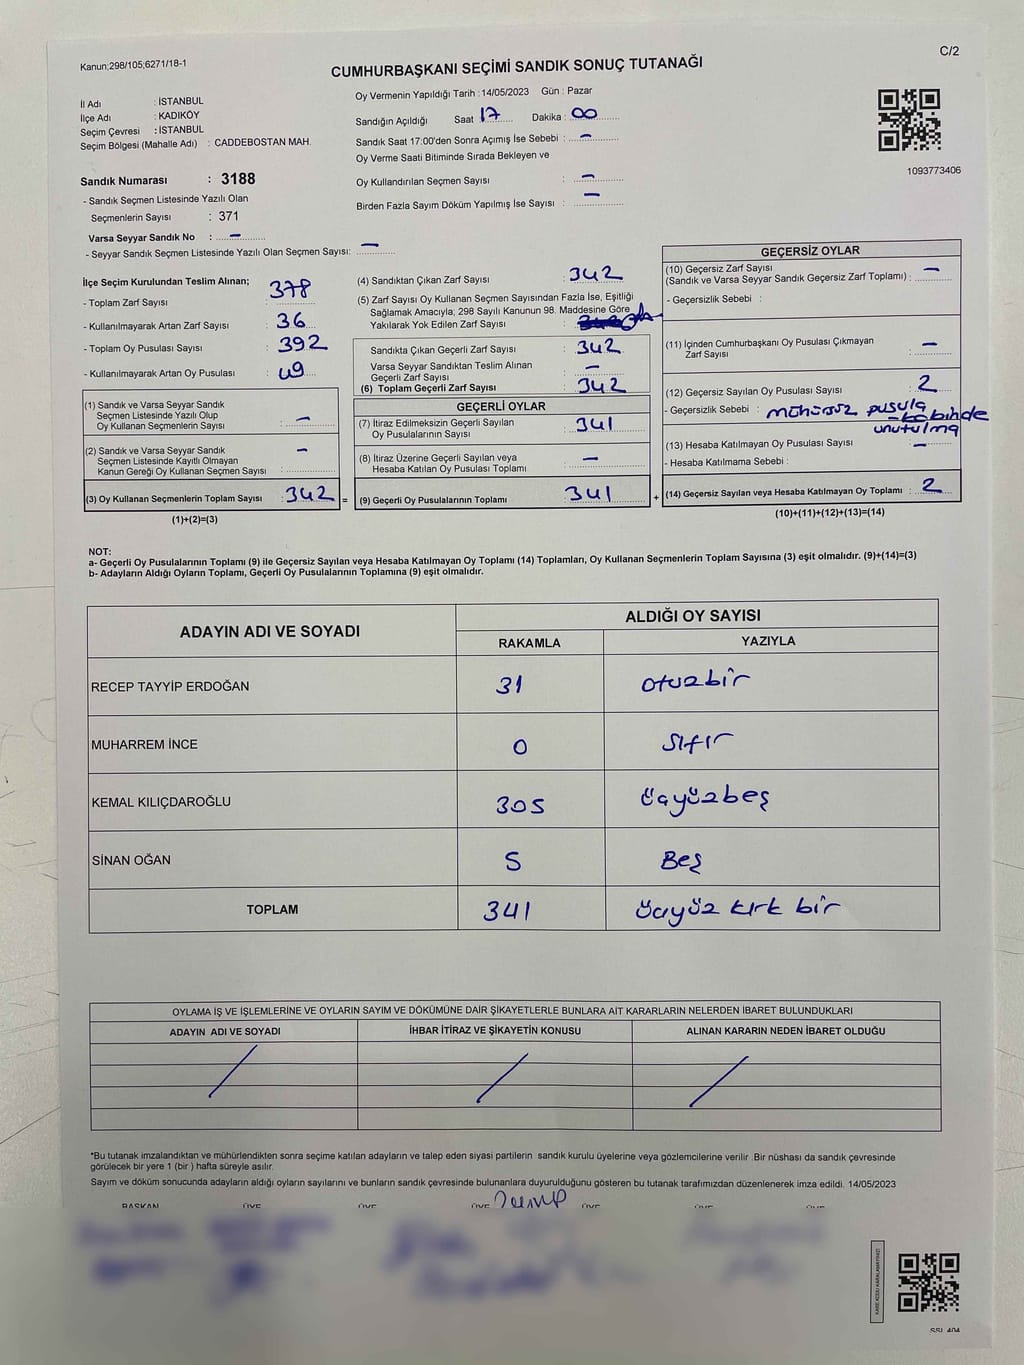 Kanun;298/105;6271/18-1
C/2
CUMHURBAŞKANI SEÇİMİ SANDIK SONUÇ TUTANAĞI
İl Adı : İSTANBUL
İlçe Adı : KADIKÖY
Seçim Çevresi : İSTANBUL
Seçim Bölgesi (Mahalle Adı) : CADDEBOSTAN MAH.
Sandık Numarası : 3188
- Sandık Seçmen Listesinde Yazılı Olan
Seçmenlerin Sayısı : 371
Varsa Seyyar Sandık No : –
- Seyyar Sandık Seçmen Listesinde Yazılı Olan Seçmen Sayısı: –
Oy Vermenin Yapıldığı Tarih : 14/05/2023 Gün : Pazar
Sandığın Açıldığı Saat 17 Dakika : 00
Sandık Saat 17:00'den Sonra Açımış İse Sebebi : –
Oy Verme Saati Bitiminde Sırada Bekleyen ve
Oy Kullandırılan Seçmen Sayısı : –
Birden Fazla Sayım Döküm Yapılmış İse Sayısı : –
1093773406
İlçe Seçim Kurulundan Teslim Alınan;
- Toplam Zarf Sayısı : 378
- Kullanılmayarak Artan Zarf Sayısı : 36
- Toplam Oy Pusulası Sayısı : 392
- Kullanılmayarak Artan Oy Pusulası : 49
(1) Sandık ve Varsa Seyyar Sandık
Seçmen Listesinde Yazılı Olup
Oy Kullanan Seçmenlerin Sayısı : –
(2) Sandık ve Varsa Seyyar Sandık
Seçmen Listesinde Kayıtlı Olmayan
Kanun Gereği Oy Kullanan Seçmen Sayısı : –
(3) Oy Kullanan Seçmenlerin Toplam Sayısı : 342 =
(1)+(2)=(3)
(4) Sandıktan Çıkan Zarf Sayısı : 342
(5) Zarf Sayısı Oy Kullanan Seçmen Sayısından Fazla İse, Eşitliği
Sağlamak Amacıyla; 298 Sayılı Kanunun 98. Maddesine Göre
Yakılarak Yok Edilen Zarf Sayısı :
Sandıkta Çıkan Geçerli Zarf Sayısı : 342
Varsa Seyyar Sandıktan Teslim Alınan
Geçerli Zarf Sayısı : –
(6) Toplam Geçerli Zarf Sayısı : 342
GEÇERLİ OYLAR
(7) İtiraz Edilmeksizin Geçerli Sayılan
Oy Pusulalarının Sayısı : 341
(8) İtiraz Üzerine Geçerli Sayılan ve
Hesaba Katılan Oy Pusulası Toplamı : –
(9) Geçerli Oy Pusulalarının Toplamı : 341 +
GEÇERSİZ OYLAR
(10) Geçersiz Zarf Sayısı
(Sandık ve Varsa Seyyar Sandık Geçersiz Zarf Toplamı) : –
- Geçersizlik Sebebi :
(11) İçinden Cumhurbaşkanı Oy Pusulası Çıkmayan
Zarf Sayısı : –
(12) Geçersiz Sayılan Oy Pusulası Sayısı : 2
- Geçersizlik Sebebi : mühürsüz pusula
-kabinde
unutulma
(13) Hesaba Katılmayan Oy Pusulası Sayısı : –
- Hesaba Katılmama Sebebi :
(14) Geçersiz Sayılan veya Hesaba Katılmayan Oy Toplamı : 2
(10)+(11)+(12)+(13)=(14)
NOT:
a- Geçerli Oy Pusulalarının Toplamı (9) ile Geçersiz Sayılan veya Hesaba Katılmayan Oy Toplamı (14) Toplamları, Oy Kullanan Seçmenlerin Toplam Sayısına (3) eşit olmalıdır. (9)+(14)=(3)
b- Adayların Aldığı Oyların Toplamı, Geçerli Oy Pusulalarının Toplamına (9) eşit olmalıdır.
ADAYIN ADI VE SOYADI
ALDIĞI OY SAYISI
RAKAMLA YAZIYLA
RECEP TAYYİP ERDOĞAN 31 otuzbir
MUHARREM İNCE 0 sıfır
KEMAL KILIÇDAROĞLU 305 üçyüzbeş
SİNAN OĞAN 5 Beş
TOPLAM 341 üçyüz kırk bir
OYLAMA İŞ VE İŞLEMLERİNE VE OYLARIN SAYIM VE DÖKÜMÜNE DAİR ŞİKAYETLERLE BUNLARA AİT KARARLARIN NELERDEN İBARET BULUNDUKLARI
ADAYIN ADI VE SOYADI İHBAR İTİRAZ VE ŞİKAYETİN KONUSU ALINAN KARARIN NEDEN İBARET OLDUĞU
*Bu tutanak imzalandıktan ve mühürlendikten sonra seçime katılan adayların ve talep eden siyasi partilerin sandık kurulu üyelerine veya gözlemcilerine verilir .Bir nüshası da sandık çevresinde
görülecek bir yere 1 (bir ) hafta süreyle asılır.
Sayım ve döküm sonucunda adayların aldığı oyların sayılarını ve bunların sandık çevresinde bulunanlara duyurulduğunu gösteren bu tutanak tarafımızdan düzenlenerek imza edildi. 14/05/2023
BAŞKAN ÜYE ÜYE ÜYE ÜYE ÜYE ÜYE